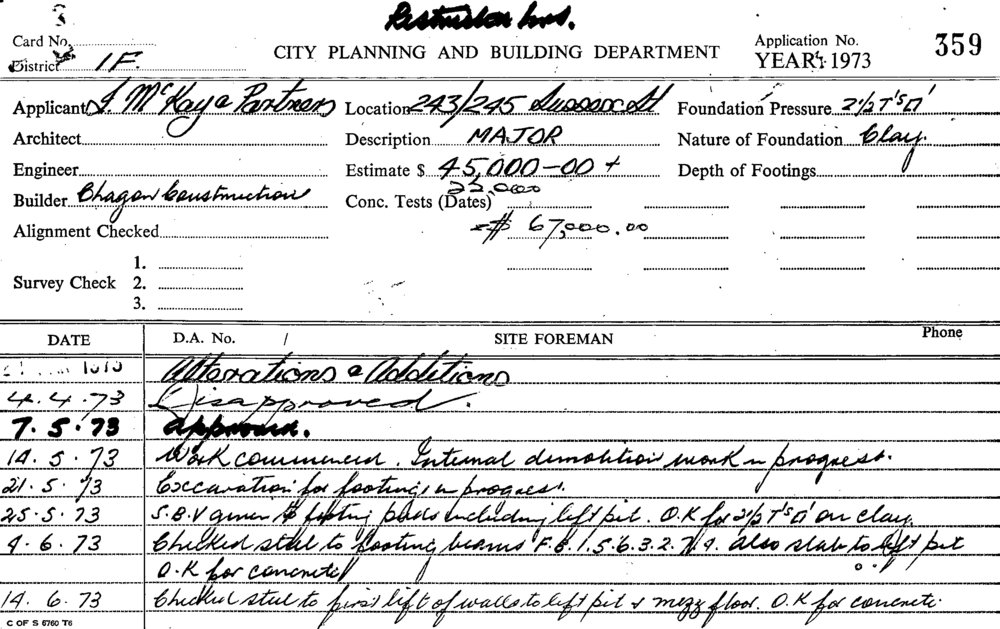 Card No.
CITY PLANNING AND BUILDING DEPARTMENT
Application No.
YEAR: 1973
359
District 1F.
Applicant J. McKay & Partners
Location 243/245 Sussex St
Foundation Pressure 2 1/2 T's □'
Architect
Description MAJOR
Nature of Foundation Clay.
Engineer
Estimate $ 45,000-00 +
Depth of Footings
22,000
Builder Construction
Conc. Tests (Dates)
Alignment Checked
= $ 67,000.00
1.
Survey Check 2.
3.
DATE
D.A. No. /
SITE FOREMAN
Phone
1973 Alterations & Additions
4.4.73 Disapproved.
7.5.73 Approved.
14.5.73 Work commenced. Internal demolition work in progress.
21.5.73 Excavation for footings in progress.
25.5.73 S.B.V given to footing pads including lift pit. O.K for 2 1/2 T's □' on clay.
4.6.73 Checked steel to footing beams F.8.1.5.6.3.2.7.9. Also slab to lift pit
O.K for concrete
14.6.73 Checked steel to first lift of walls to lift pit & mezz floor. O.K for concrete.
C OF S 6760 T6